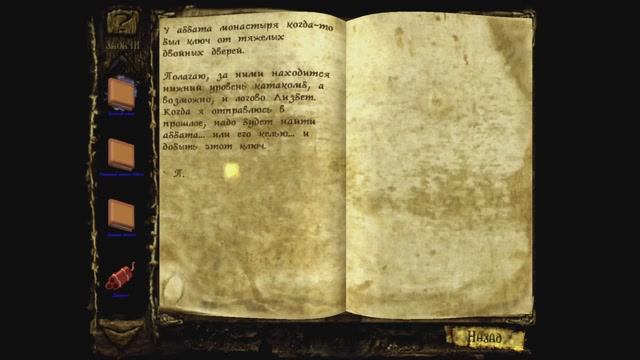 У аббата монастыря когда-то
был ключ от тяжелых
двойных дверей.
Полагаю, за ними находится
нижний уровень катакомб, а
возможно, и логово Лизбет.
Когда я отправлюсь в
прошлое, надо будет найти
аббата... или его келью... и
добыть этот ключ.
- П.
Назад